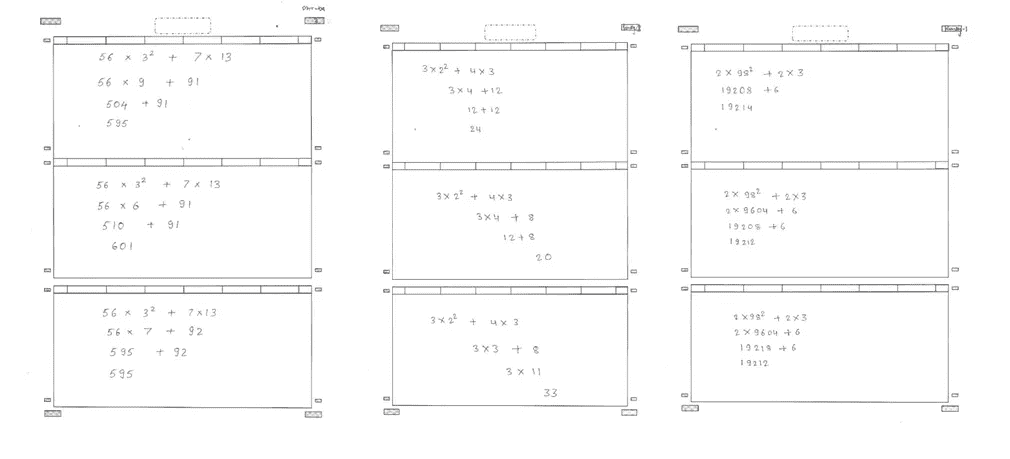 56 × 3² + 7 × 13
56 × 9 + 91
504 + 91
595
56 × 3² + 7 × 13
56 × 6 + 91
510 + 91
601
56 × 3² + 7×13
56 × 7 + 92
595 + 92
595
3×2² + 4×3
3×4 +12
12+12
24
3×2² + 4×3
3×4 + 8
12+8
20
3×2² + 4×3
3×3 + 8
3 × 11
33
2×98² +2×3
19208 +6
19214
2×98² +2×3
2×9604 +6
19208 +6
19212
2×98² +2×3
2×9604 +6
19218 +6
19212